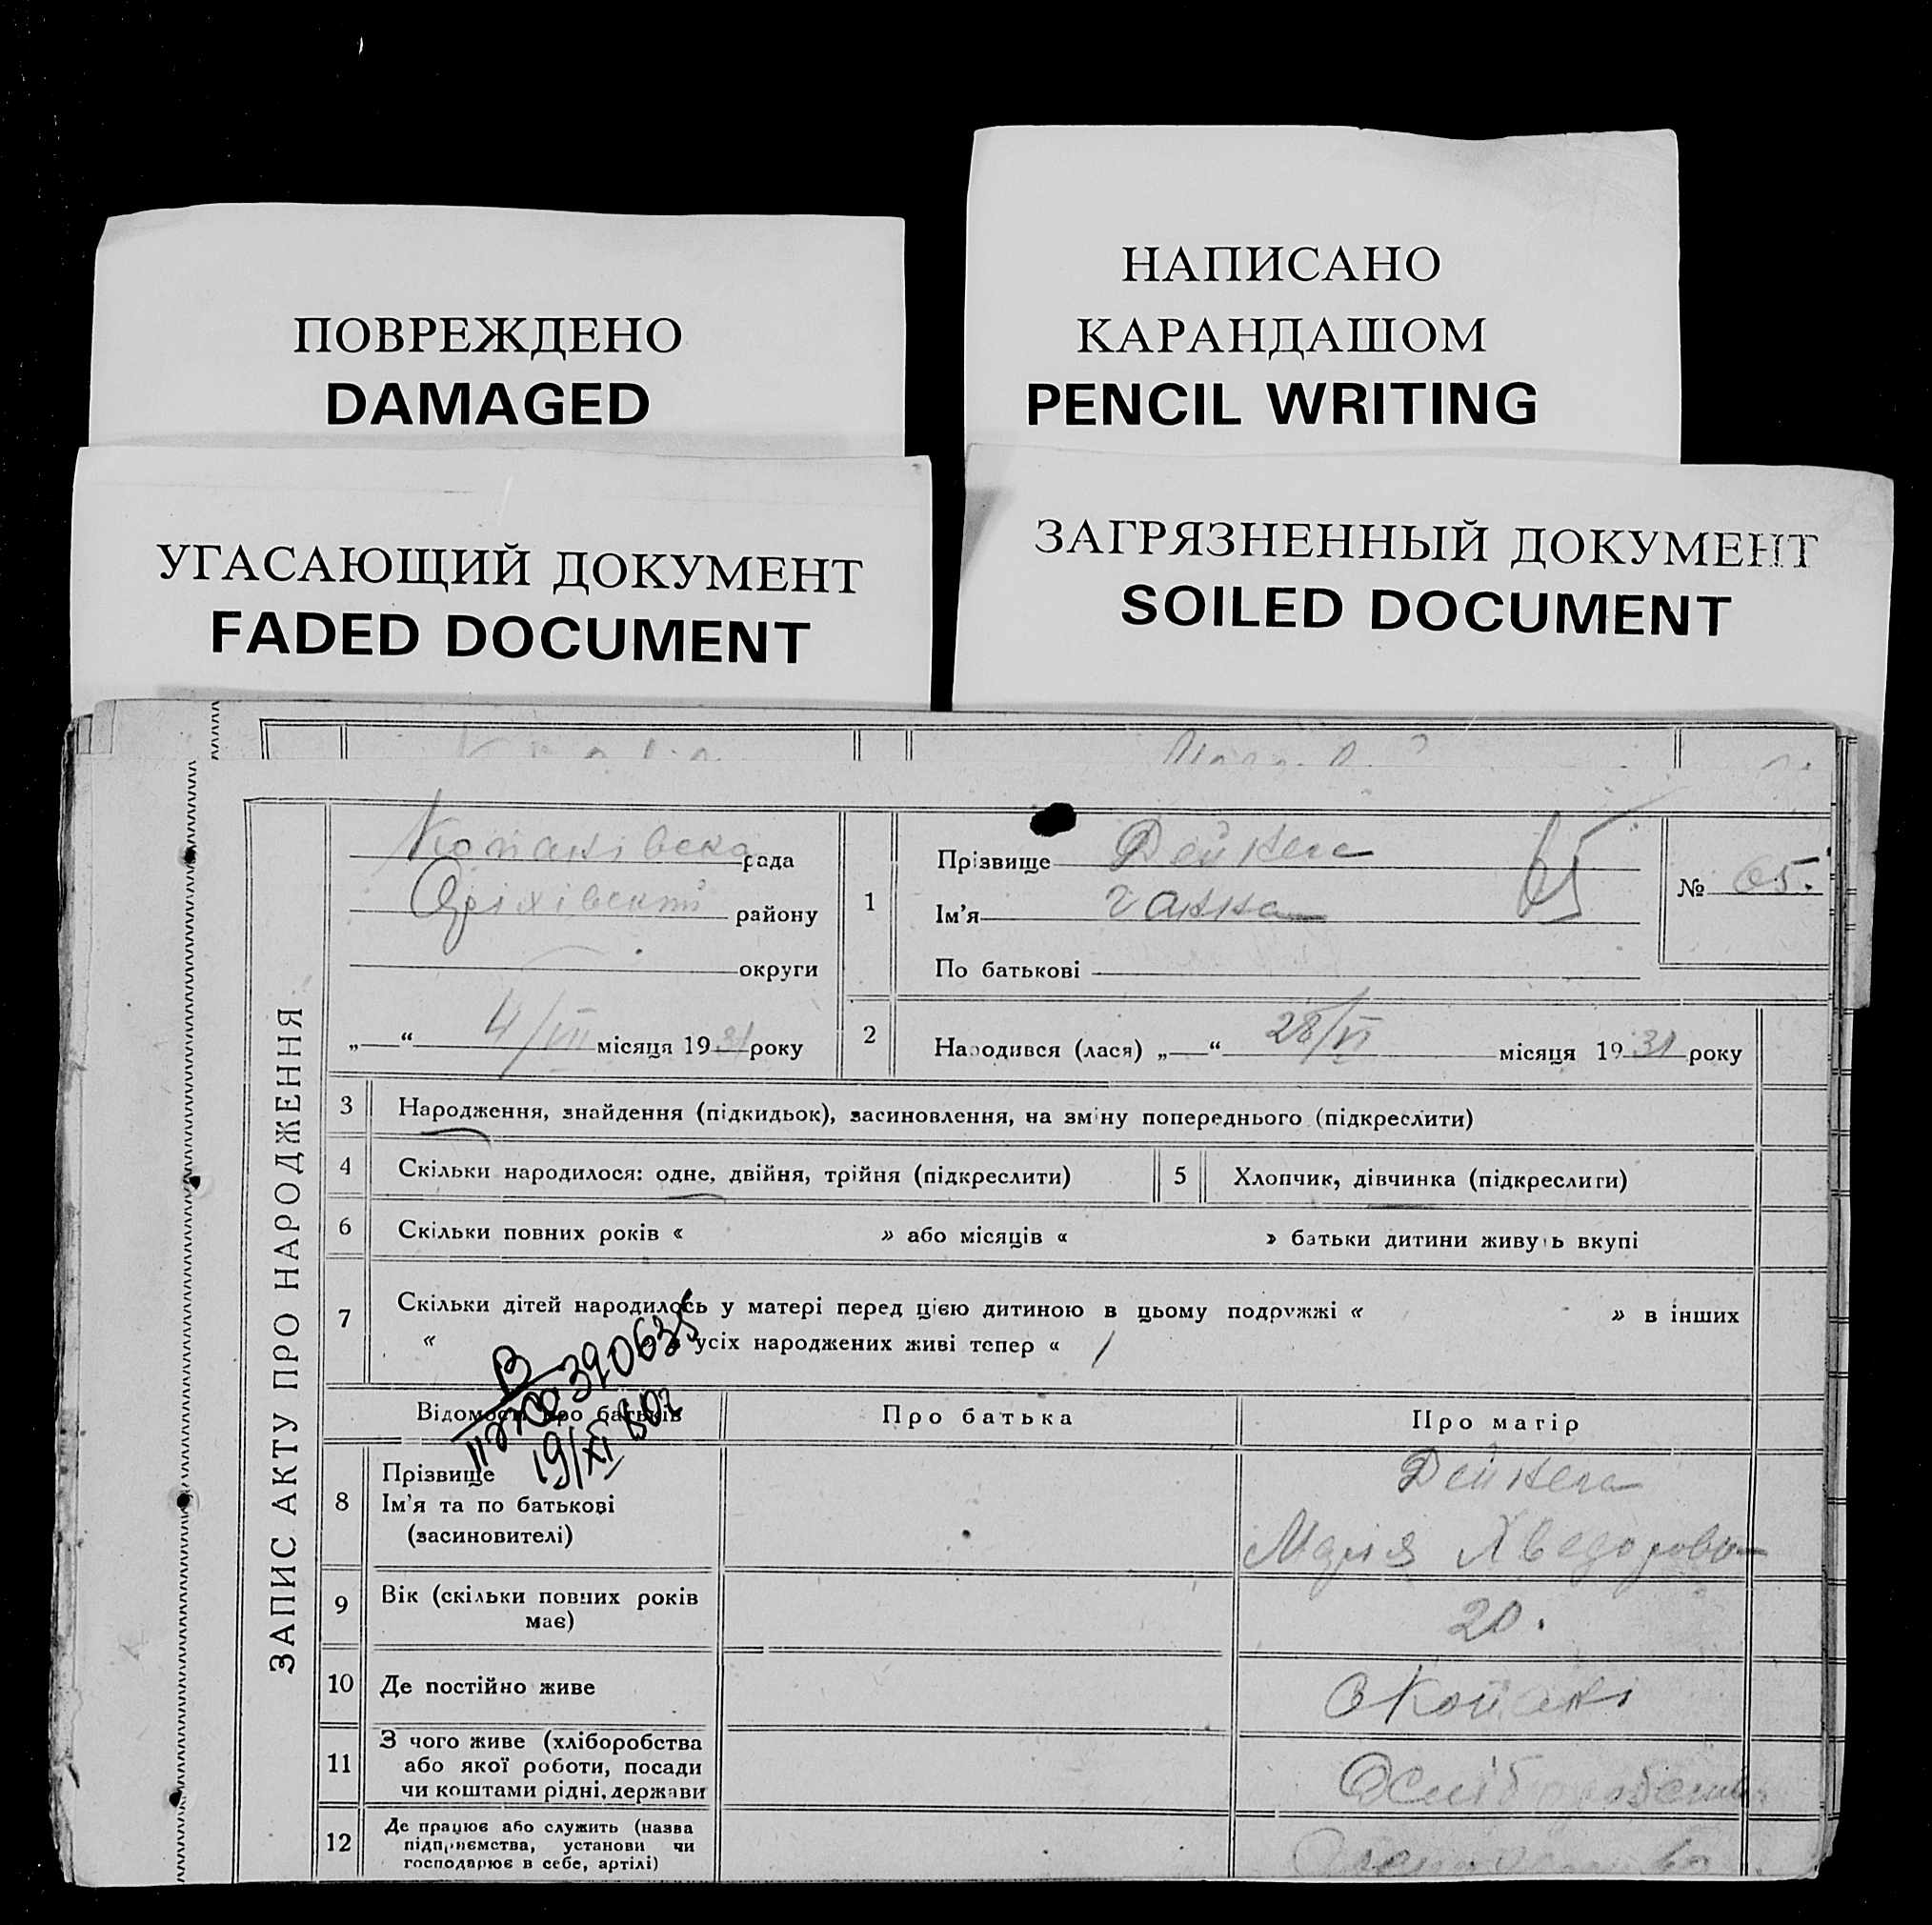 ПОВРЕЖДЕНО
DAMAGED
НАПИСАНО
КАРАНДАШОМ
PENCIL WRITING
УГАСАЮЩИЙ ДОКУМЕНТ
FADED DOCUMENT
ЗАГРЯЗНЕННЫЙ ДОКУМЕНТ
SOILED DOCUMENT
ЗАПИС АКТУ ПРО НАРОДЖЕННЯ
Копанівська рада
Оріхівський району
округи
„ “ 4/VII місяця 1931 року
1
Прізвище Дейнега
Ім'я Ганна
По батькові
65
№ 65.
2
Народився (лася) „ “ 28/VI місяця 1931 року
3 Народження, знайдення (підкидьок), засиновлення, на зміну попереднього (підкреслити)
4 Скільки народилося: одне, двійня, трійня (підкреслити) 5 Хлопчик, дівчинка (підкреслити)
6 Скільки повних років « » або місяців « » батьки дитини живуть вкупі
7 Скільки дітей народилось у матері перед цією дитиною в цьому подружжі « » в інших
« усіх народжених живі тепер « 1
390635
19/XI
Відомості про батьків Про батька Про матір
8 Прізвище
Ім'я та по батькові
(засиновителі)
Дейнега
Марія Хведоровн
9 Вік (скільки повних років
має)
20.
10 Де постійно живе
с Копані
11 З чого живе (хліборобства
або якої роботи, посади
чи коштами рідні, держави
Хліборобство
12 Де працює або служить (назва
підприємства, установи чи
господарює в себе, артілі)